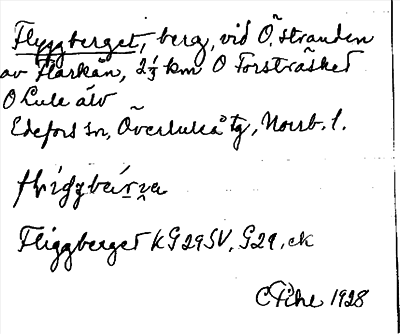 Flyggberget, berg, vid Ö. stranden
av Flarkån, 2 1/3 km O Forsträsket
O Lule älv
Edefors sn, Överluleå tg, Norrb. l.
Fliggberget KG29SV, G29, ek
C Pihl 1928